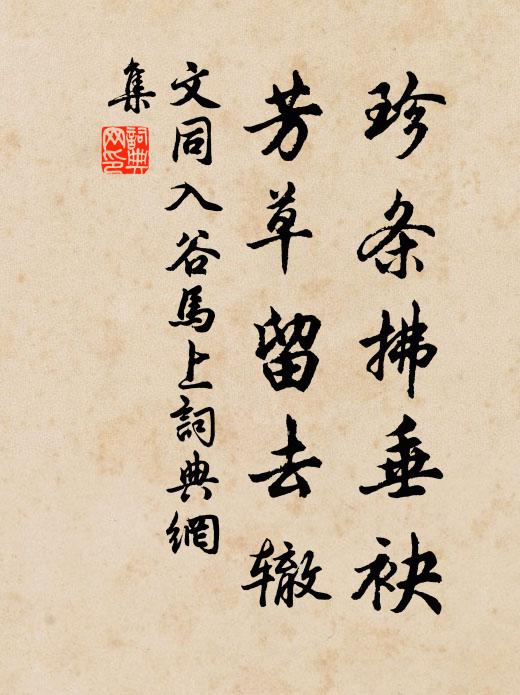 珍条拂垂袂
芳草留去辙
文同入谷馬上詞典網
集
詞典
网印